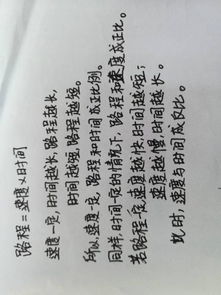 路程=速度×时间
速度一定,时间越长,路程越长,
时间越短,路程越短。
所以速度一定,路程和时间成正比例。
同样,时间一定的情况下,路程和速度成正比。
若路程一定,速度越快,时间越短;
速度越慢,时间越长。
此时,速度与时间成反比。